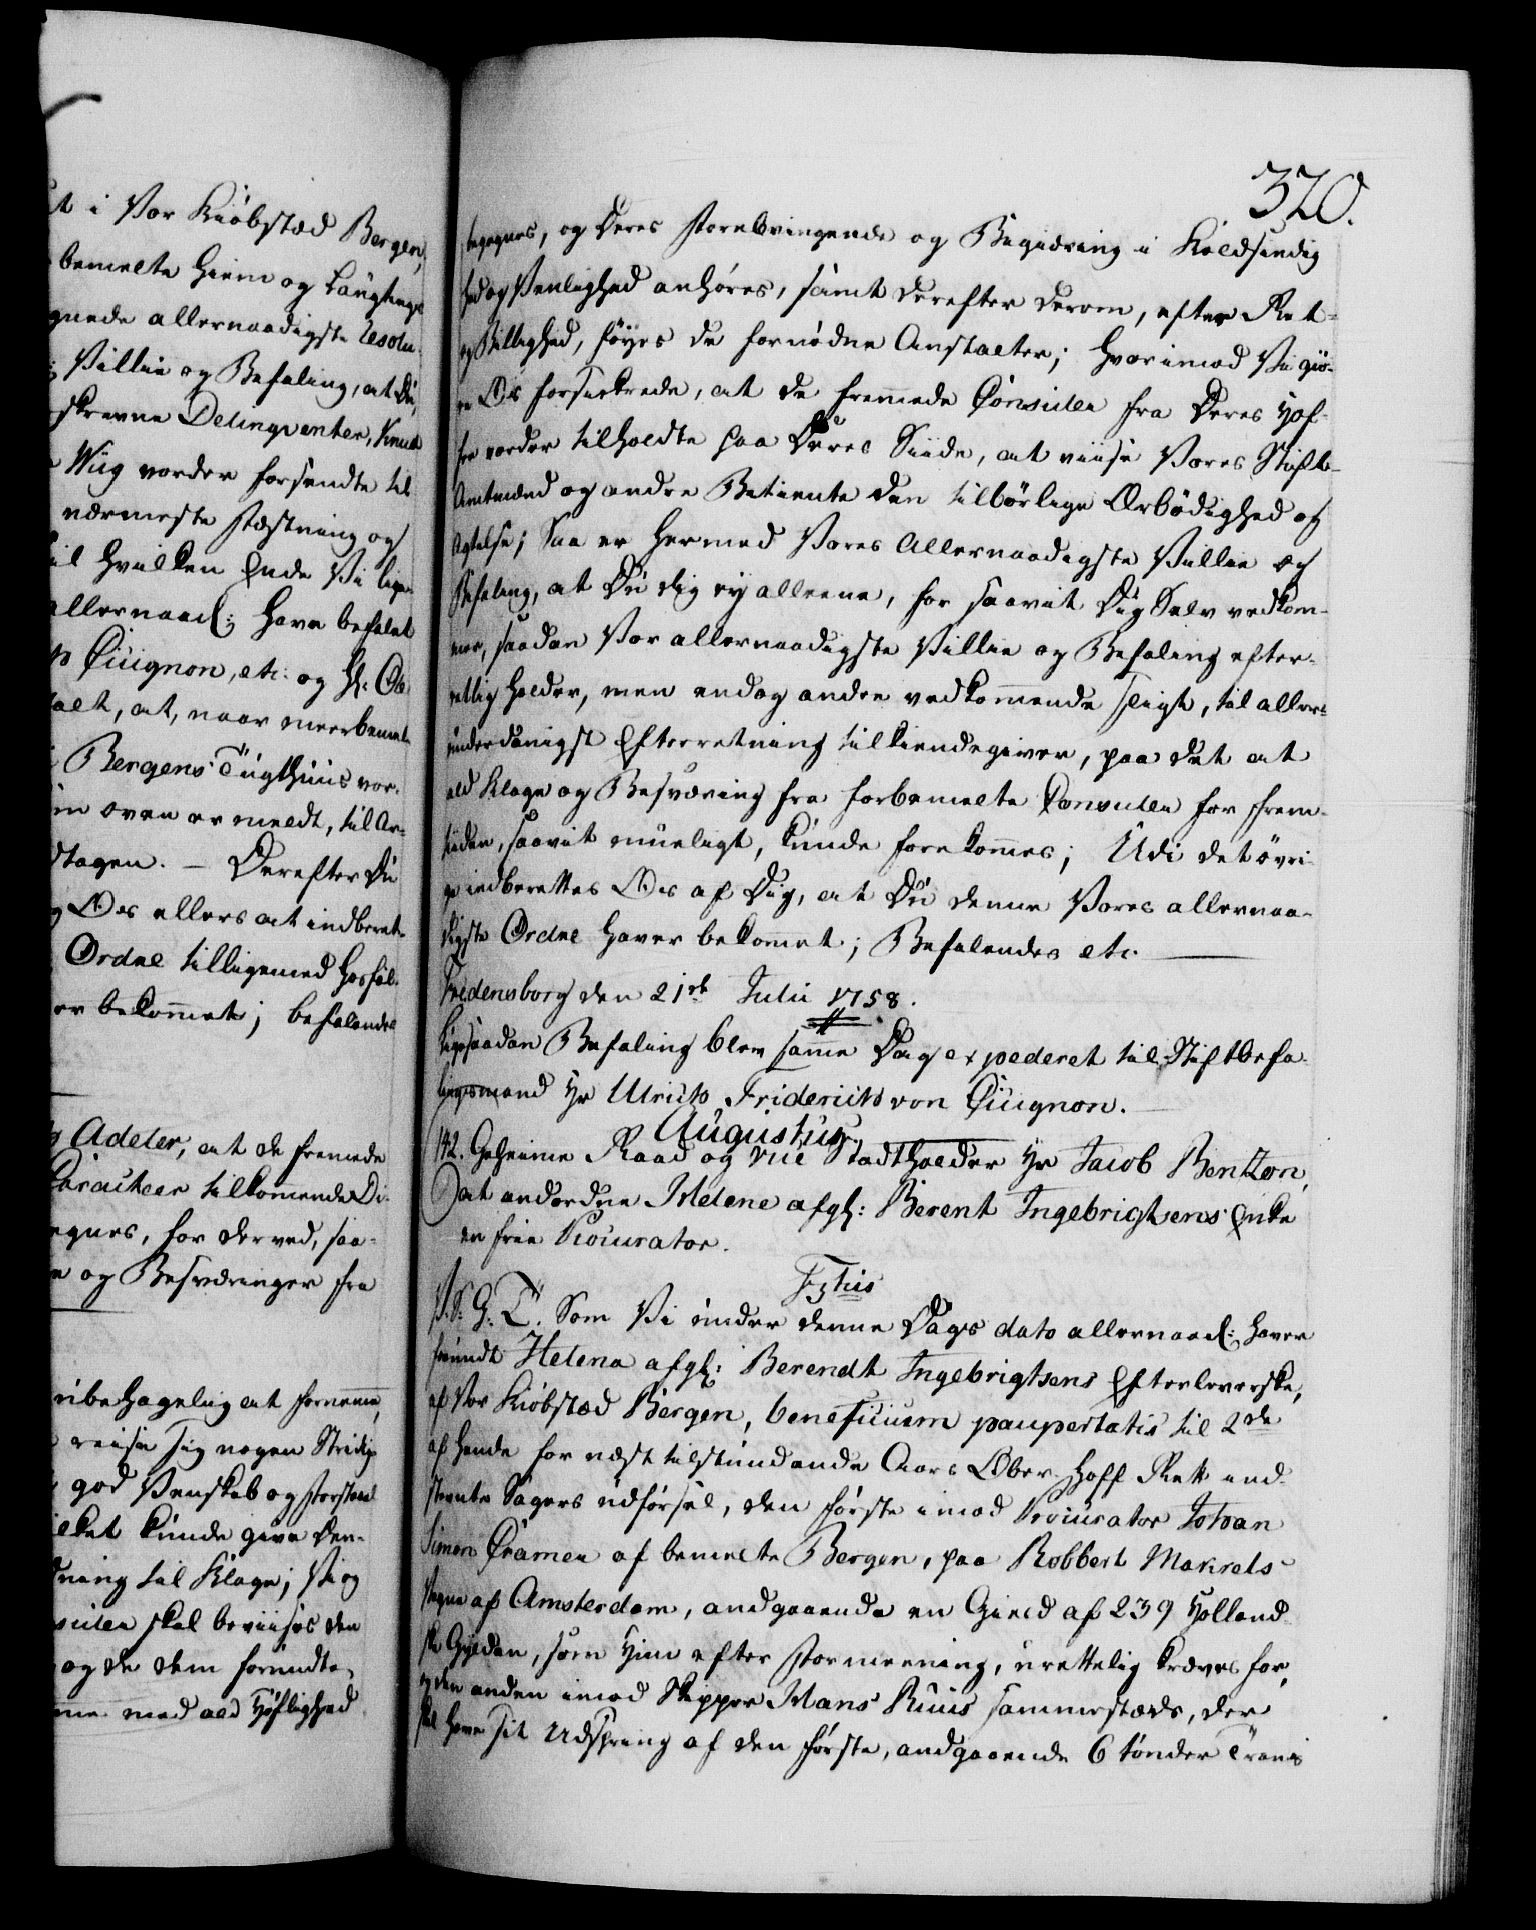 t i Vor Kiöbstæd Bergen,
bemelte Hiem og Langtings
gnede allernaadigste Resolu-
Villie og Befaling, at Du,
skrevne Delinqventer, Knud
Wiig vorder forsendte til
nærmeste Fæstning og
til hvilken Ende Vi lige-
allernaad: Have befalet
Cicignon, etc: og H: Ob
talt, at, naar meerbemelte
Bergens Tugthuus vor-
som oven er meldt, til Ar-
dtagen. – Derefter Du
Os ellers at indberet-
Ordre tilligemed hosføl-
er bekommet; befalendes
Adeler, at de fremmede
Caracteer tilkommende Di-
egnes, for derved, saa-
e og Besværinger fra
ubehagelig at fornemme,
reise sig nogen Stridig-
god Venskab og Forstaael
ilket kunde give Den-
dning til Klage; Vi og
sulen skal beviises den
og de dem forundte
mme med ald Høflighed
320.
begegnes, og Deres Forebringende og Begiæring i Koldsindig
hed og Venlighed anhøres, samt derefter derom, efter Ret-
og Billighed, føyes de fornødne Anstalter; hvorimod Vi giø-
re Os forsikrede, at de fremmede Consuler fra Deres Hof-
fer vorder tilholdte paa Deres Siide, at viise Vores Stift-
Amtmænd og andre Betiente den tilbørlige Ærbødighed og
Agtelse; Saa er hermed Vores Allernaadigste Villie og
Befaling, at Du dig ey alleene, for saavit Dig Selv vedkom-
mer, saadan Vor allernaadigste Villie og Befaling efter-
rettlig holder, men endog andre vedkommende sligt, til aller-
underdanigst Efterretning tilkiendegiver, paa det at
ald Klage og Besværing fra forbemelte Consuler for frem-
tiden, saavit mueligt, kunde forekommes; Udi det øvri-
ge indberettes Os af Dig, at Du denne Vores allernaa-
digste Ordre haver bekommet; Befalendes etc.
Fredensborg den 21de Julii 1758.
Ligesaadan Befaling blev samme Dag expederet til Stiftbefa-
lingsmand Hr Ulrich Friderich von Cicignon.
Augustus.
142. Geheime Raad og vice Stadtholder Hr Jacob Bentzon,
at anordne Helene afg: Berent Ingebrigtsens Enke
en frie Procurator.
F 5tus
P. S. G. T. Som Vi under denne Dags dato allernaad: haver
forundt Helena afg: Berendt Ingebrigtsens Efterleverske,
af Vor Kiøbstæd Bergen, beneficium paupertatis til 2de
af hende for næst tilstundende Aars Ober-Hoff Rett ind-
stevnte Sagers udførsel, den første imod Procurator Johan
Simon Cramer af bemelte Bergen, paa Robbert Makrels
Vegne af Amsterdam, angaaende en Gield af 239 Holland-
ske Gylden, som Hun efter Formeening, urettelig kræves for,
og den anden imod Skipper Hans Ruus sammestæds, der
skal have sit Udspring af den første, angaaende 6 tønder Tran